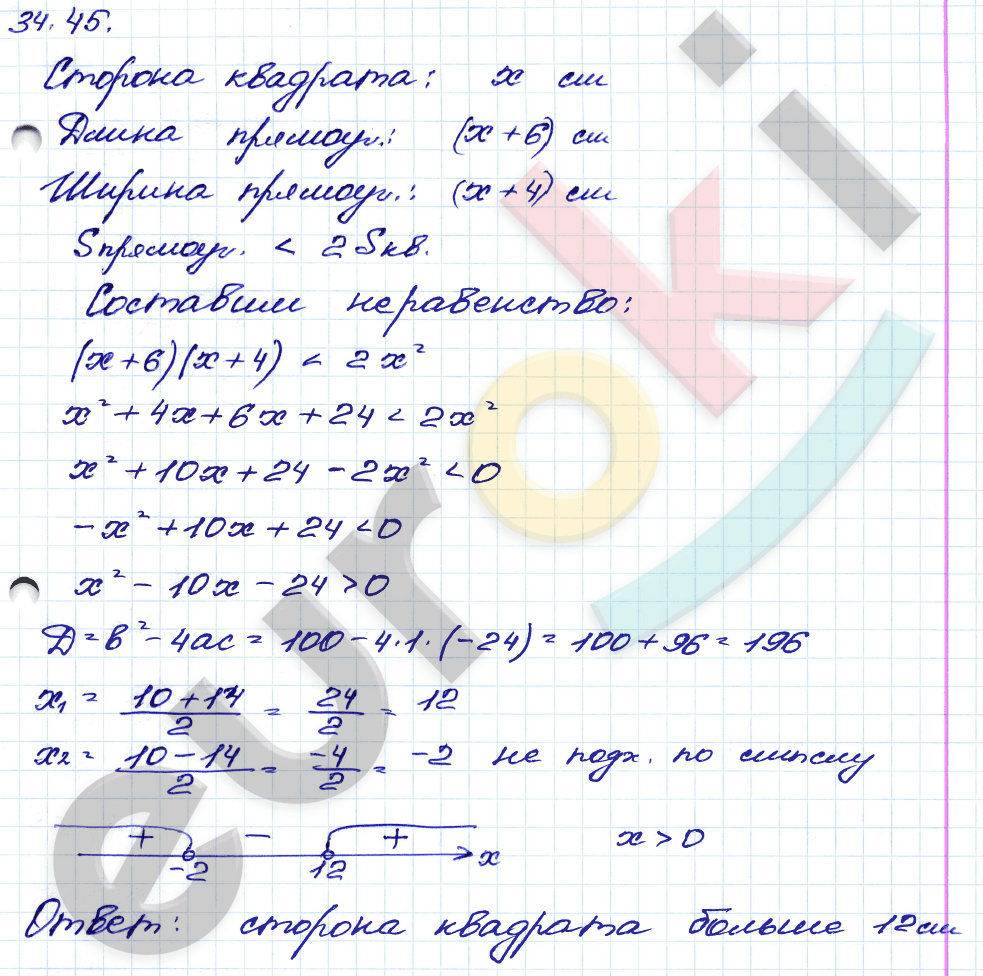 34.45.
Сторона квадрата: x см
Длина прямоуг.: (x+6) см
Ширина прямоуг.: (x+4) см
Sпрямоуг. < 2Sкв.
Составим неравенство:
(x+6)(x+4) < 2x²
x²+4x+6x+24<2x²
x²+10x+24-2x²<0
-x²+10x+24<0
x²-10x-24>0
D=b²-4ac=100-4·1·(-24)=100+96=196
x₁=(10+14)/2=24/2=12
x₂=(10-14)/2=-4/2=-2 не подх. по смыслу
+ - + x>0
-2 12 x
Ответ: сторона квадрата больше 12см
euroki